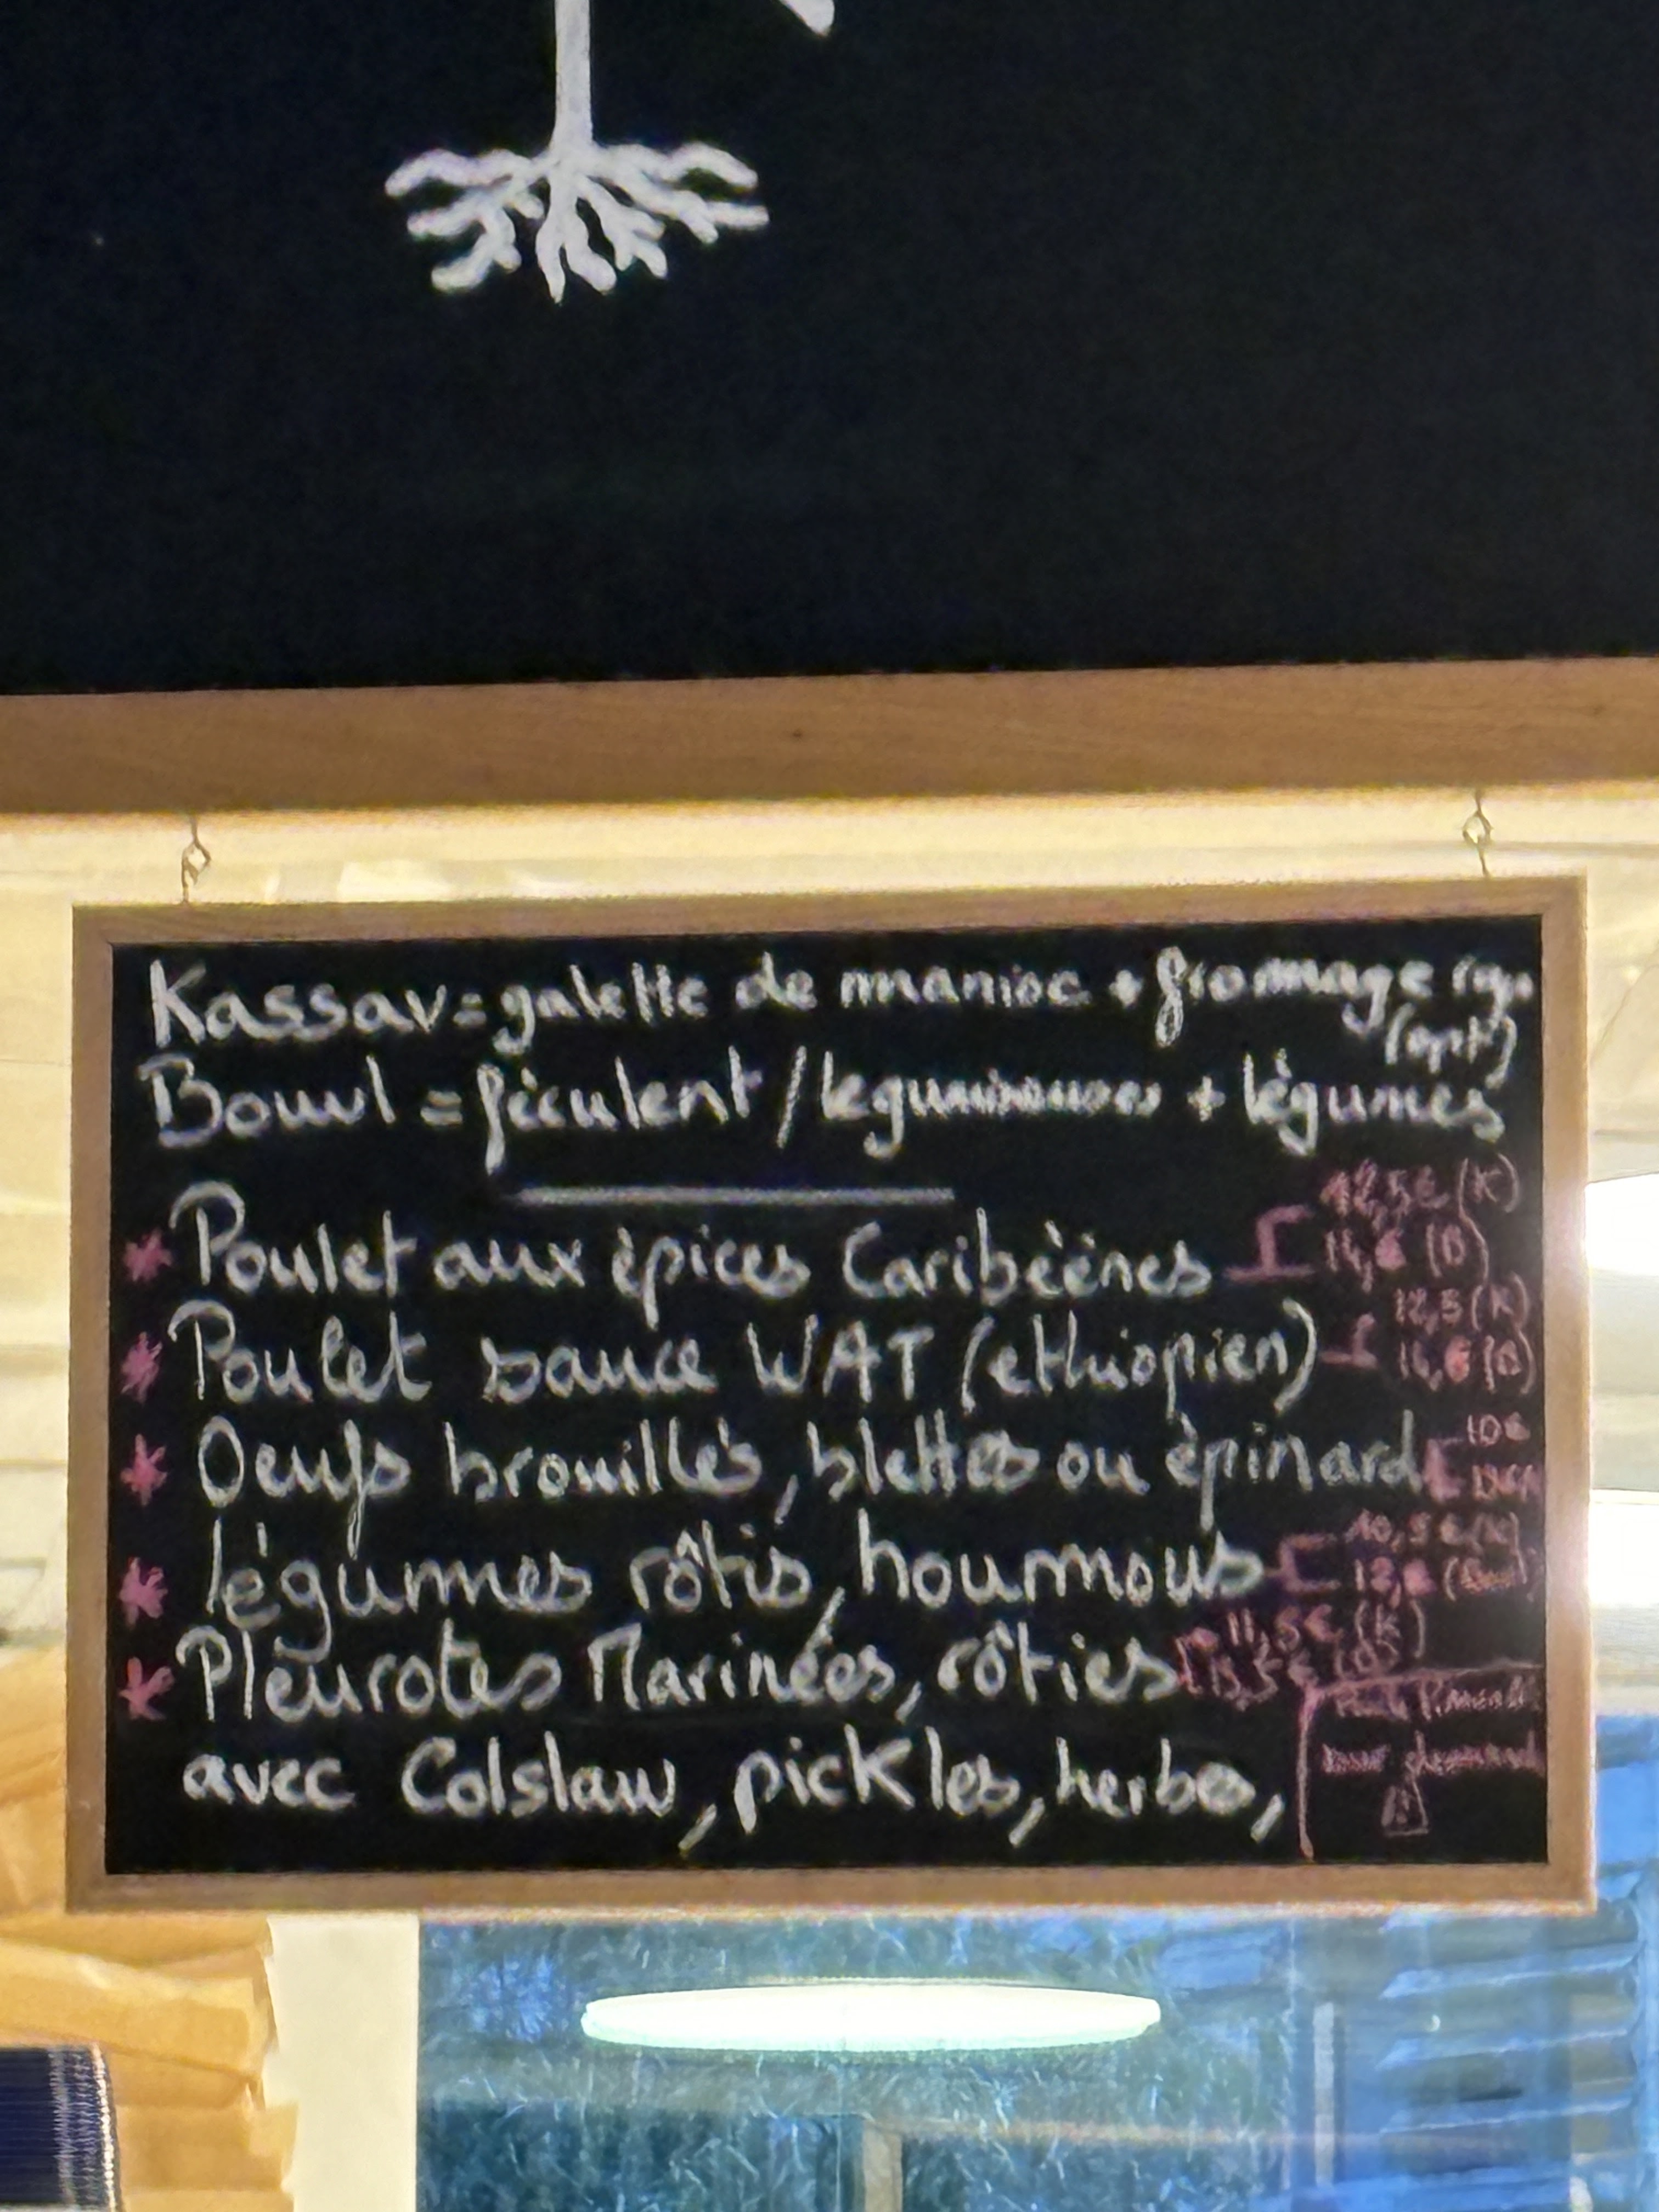 Kassav = galette de manioc + fromage
(opt)
Bowl = féculent / legumineuses + légumes
* Poulet aux épices Caribéènes 12,5€ (K)
14,€ (B)
* Poulet sauce WAT (ethiopien) 12,5 (K)
14,€ (B)
* Oeufs brouillés, blettes ou épinard 10€
* légumes rôtis, houmous 10,5€ (K)
12,€
* Pleurotes Marinées, rôties 11,5€ (K)
13,5€
avec Colslaw, pickles, herbes,